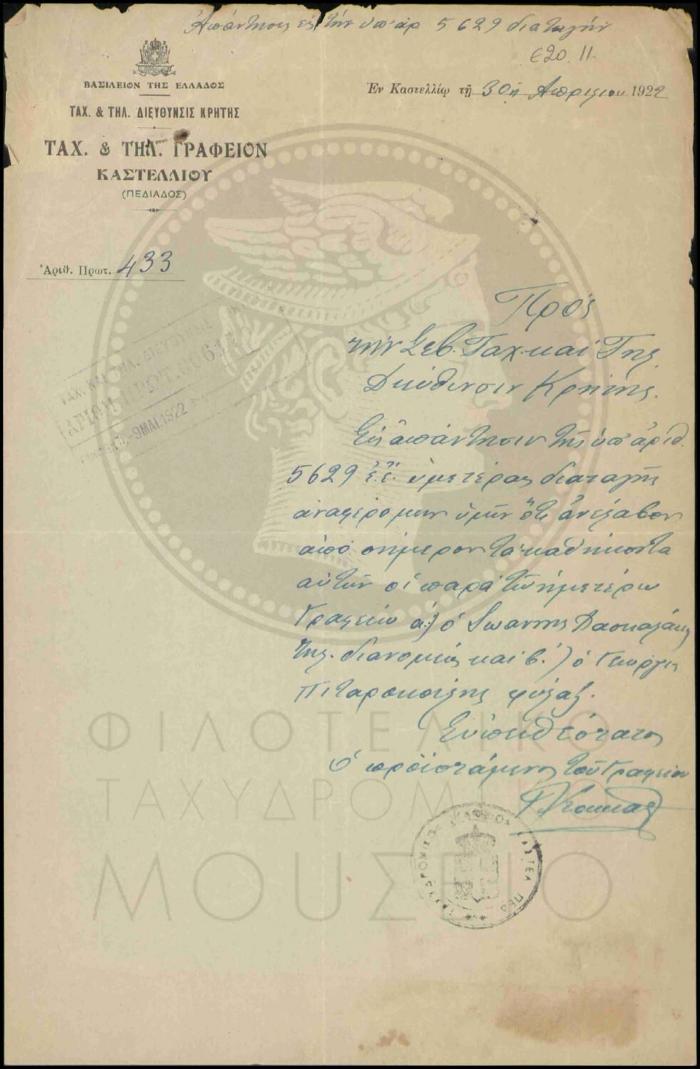 Ἀπάντησις εἰς τὴν ὑπ' ἀρ 5629 διαταγὴν
ε20.11
ΒΑΣΙΛΕΙΟΝ ΤΗΣ ΕΛΛΑΔΟΣ
ΤΑΧ. & ΤΗΛ. ΔΙΕΥΘΥΝΣΙΣ ΚΡΗΤΗΣ
ΤΑΧ. & ΤΗΛ. ΓΡΑΦΕΙΟΝ
ΚΑΣΤΕΛΛΙΟΥ
(ΠΕΔΙΑΔΟΣ)
Ἐν Καστελλίῳ τῇ 30ῃ Ἀπριλίου 1922
Ἀριθ. Πρωτ. 433
ΤΑΧ. ΚΑΙ ΤΗΛ. ΔΙΕΥΘΥΝΣΙΣ
-9 ΜΑΙ 1922
Πρὸς
τὴν Σεβ. Ταχ. καὶ Τηλ.
Διεύθυνσιν Κρήτης.
Εἰς ἀπάντησιν τῆς ὑπ' ἀριθ.
5629 ἐ.ἔ. ὑμετέρας διαταγῆς
ἀναφέρομεν ὑμῖν ὅτι ἀνέλαβον
ἀπὸ σήμερον τὰ καθήκοντα
αὐτῶν οἱ παρὰ τῷ ἡμετέρῳ
Γραφείῳ α) ὁ Ἰωάννης Δασκαλάκης
τηλ. διανομεὺς καὶ β.) ὁ Γεώργιος
φύλαξ.
Εὐπειθέστατος
Ὁ προϊστάμενος τοῦ Γραφείου
ΦΙΛΟΤΕΛΙΚΟ
ΤΑΧΥΔΡΟΜΙΚΟ
ΜΟΥΣΕΙΟ